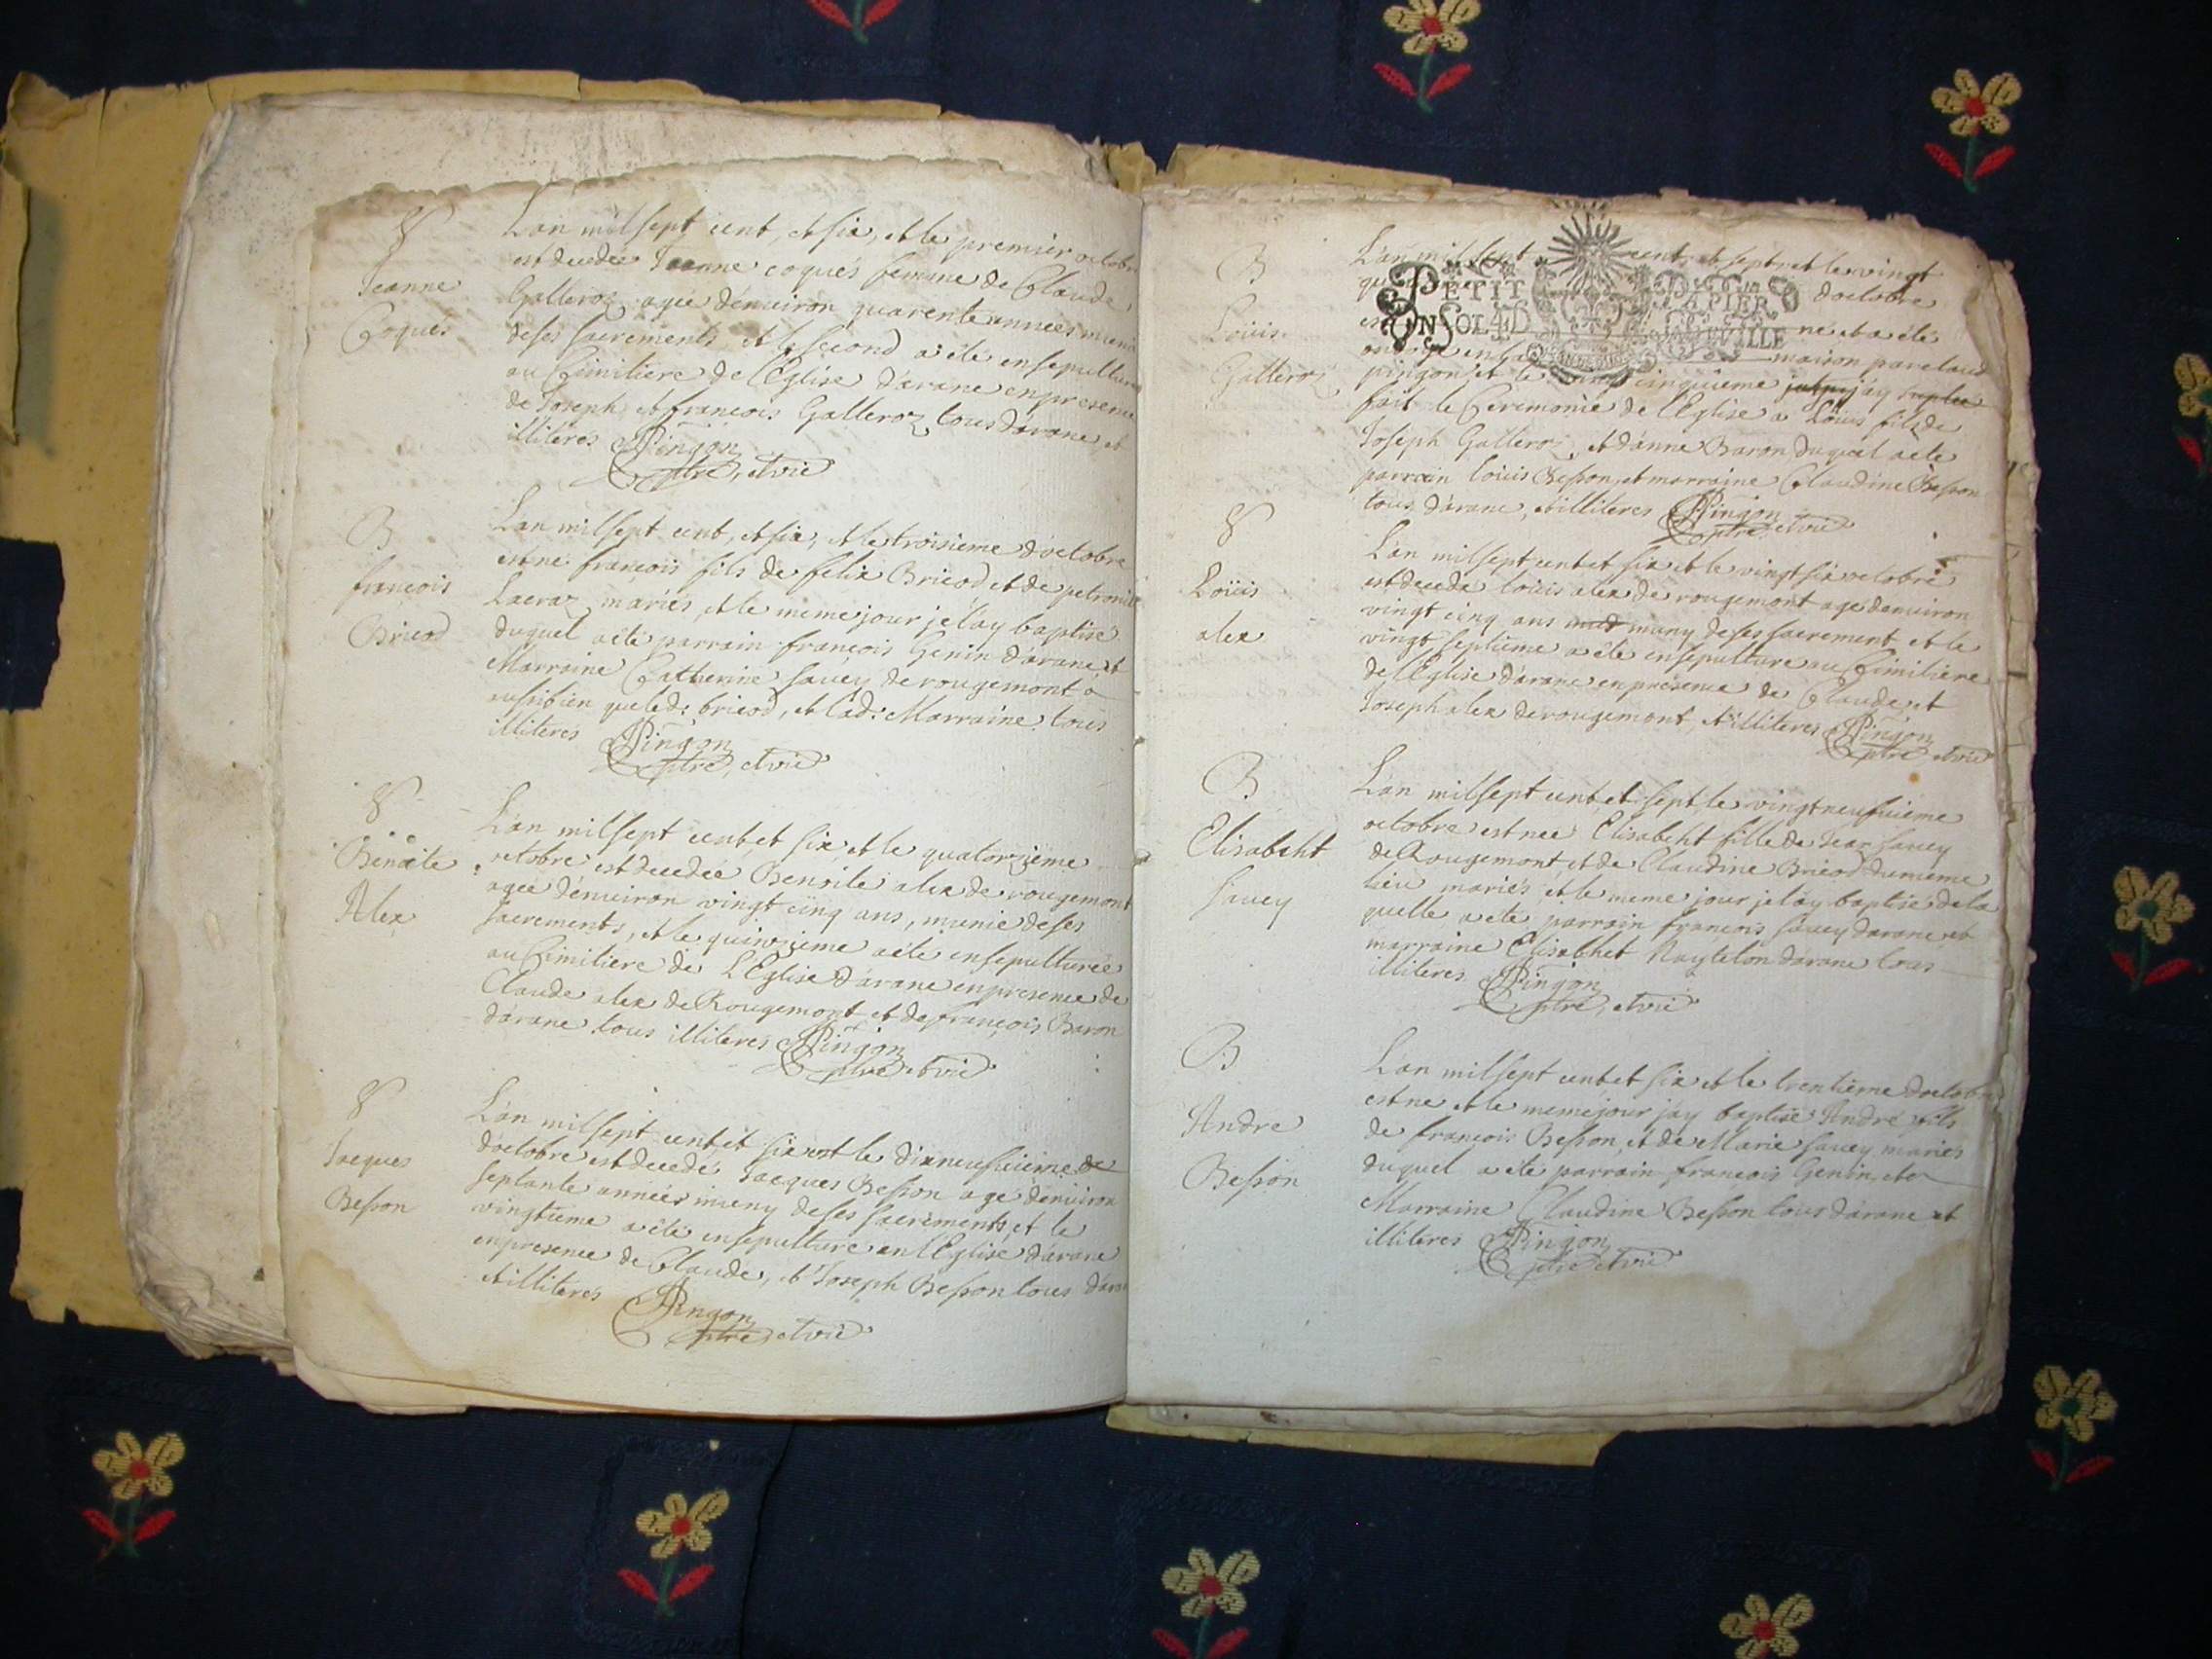 S
Jeanne
Coques
L'an mil sept cent, et six, et le premier octobre
est decedée Jeanne coques femme de Claude
Galleroz agée d'enuiron quarente années munie
de ses sacrements et le second a été ensepulturée
au Cimitiere de l'Eglise d'arane en presence
de Joseph, et francois Galleroz tous d'arane, et
illiteres Pingon
ptre, et vic
B
francois
Bricod
L'an mil sept cent, et six, et le troisieme d'octobre
est né francois fils de felix Bricod et de petronille
Lacraz mariés, et le meme jour je l'ay baptisé
duquel a été parrain francois Genin d'arane, et
Marraine Catherine sauey de rougemont
aussi bien que led: bricod, et lad: Marraine tous
illiteres Pingon
ptre, et vic
S
Benoite
Alex
L'an mil sept cent et six et le quatorzieme
octobre est decedée Benoite alex de rougemont
agée d'enuiron vingt cinq ans, munie de ses
sacrements, et le quinzieme a été ensepulturée
au Cimitiere de L'Eglise d'arane en presence de
Claude alex de Rougemont et de francois Baron
d'arane tous illiteres Pingon
ptre et vic
S
Jacques
Besson
L'an mil sept cent et six et le dixneufuieme de
d'octobre est decedé Jacques Besson agé d'enuiron
septante années muny de ses sacrements, et le
vingtieme a été ensepulturé en l'Eglise d'arane
en presence de Claude, et Joseph Besson tous d'arane
et illiteres Pingon
ptre, et vic
B
Loüis
Galleroz
L'an mil sept cent et sept et le vingt
d'octobre
PETIT PAPIER
EN SOL 4 D LA FEUILLE
né et a été
maison par claud
pingon et le cinquieme j'ay
fait le Ceremonie de l'Eglise a Loüis fils de
Joseph Galleroz, et d'anne Baron duquel a été
parrain loüis Besson, et marraine Claudine Besson
tous d'arane, et illiteres Pingon
ptre et vic
S
Loüis
alex
L'an mil sept cent et six et le vingt six octobre
est decedé loüis alex de rougemont agé d'enuiron
vingt cinq ans muny de ses sacrement et le
vingt septieme a été ensepulturé au Cimitiere
de l'Eglise d'arane en presence de Claude et
Joseph alex de rougemont, et illiteres Pingon
ptre et vic
B
Elisabeht
sauey
L'an mil sept cent et sept, le vingt neufuieme
octobre est neé Elisabeht fille de Jean sauey
de Rougemont, et de Claudine Bricod du meme
lieu mariés, et le meme jour je l'ay baptisé de la
quelle a été parrain francois sauey d'arane et
marraine Elisabhet Raytelon d'arane tous
illiteres Pingon
ptre, et vic
B
Andre
Besson
L'an mil sept cent et six et le trentieme d'octobre
est né et le meme jour j'ay baptisé André fils
de francois Besson, et de Marie sauey mariés
duquel a été parrain francois Genin, et
Marraine Claudine Besson tous d'arane et
illiteres Pingon
ptre et vic